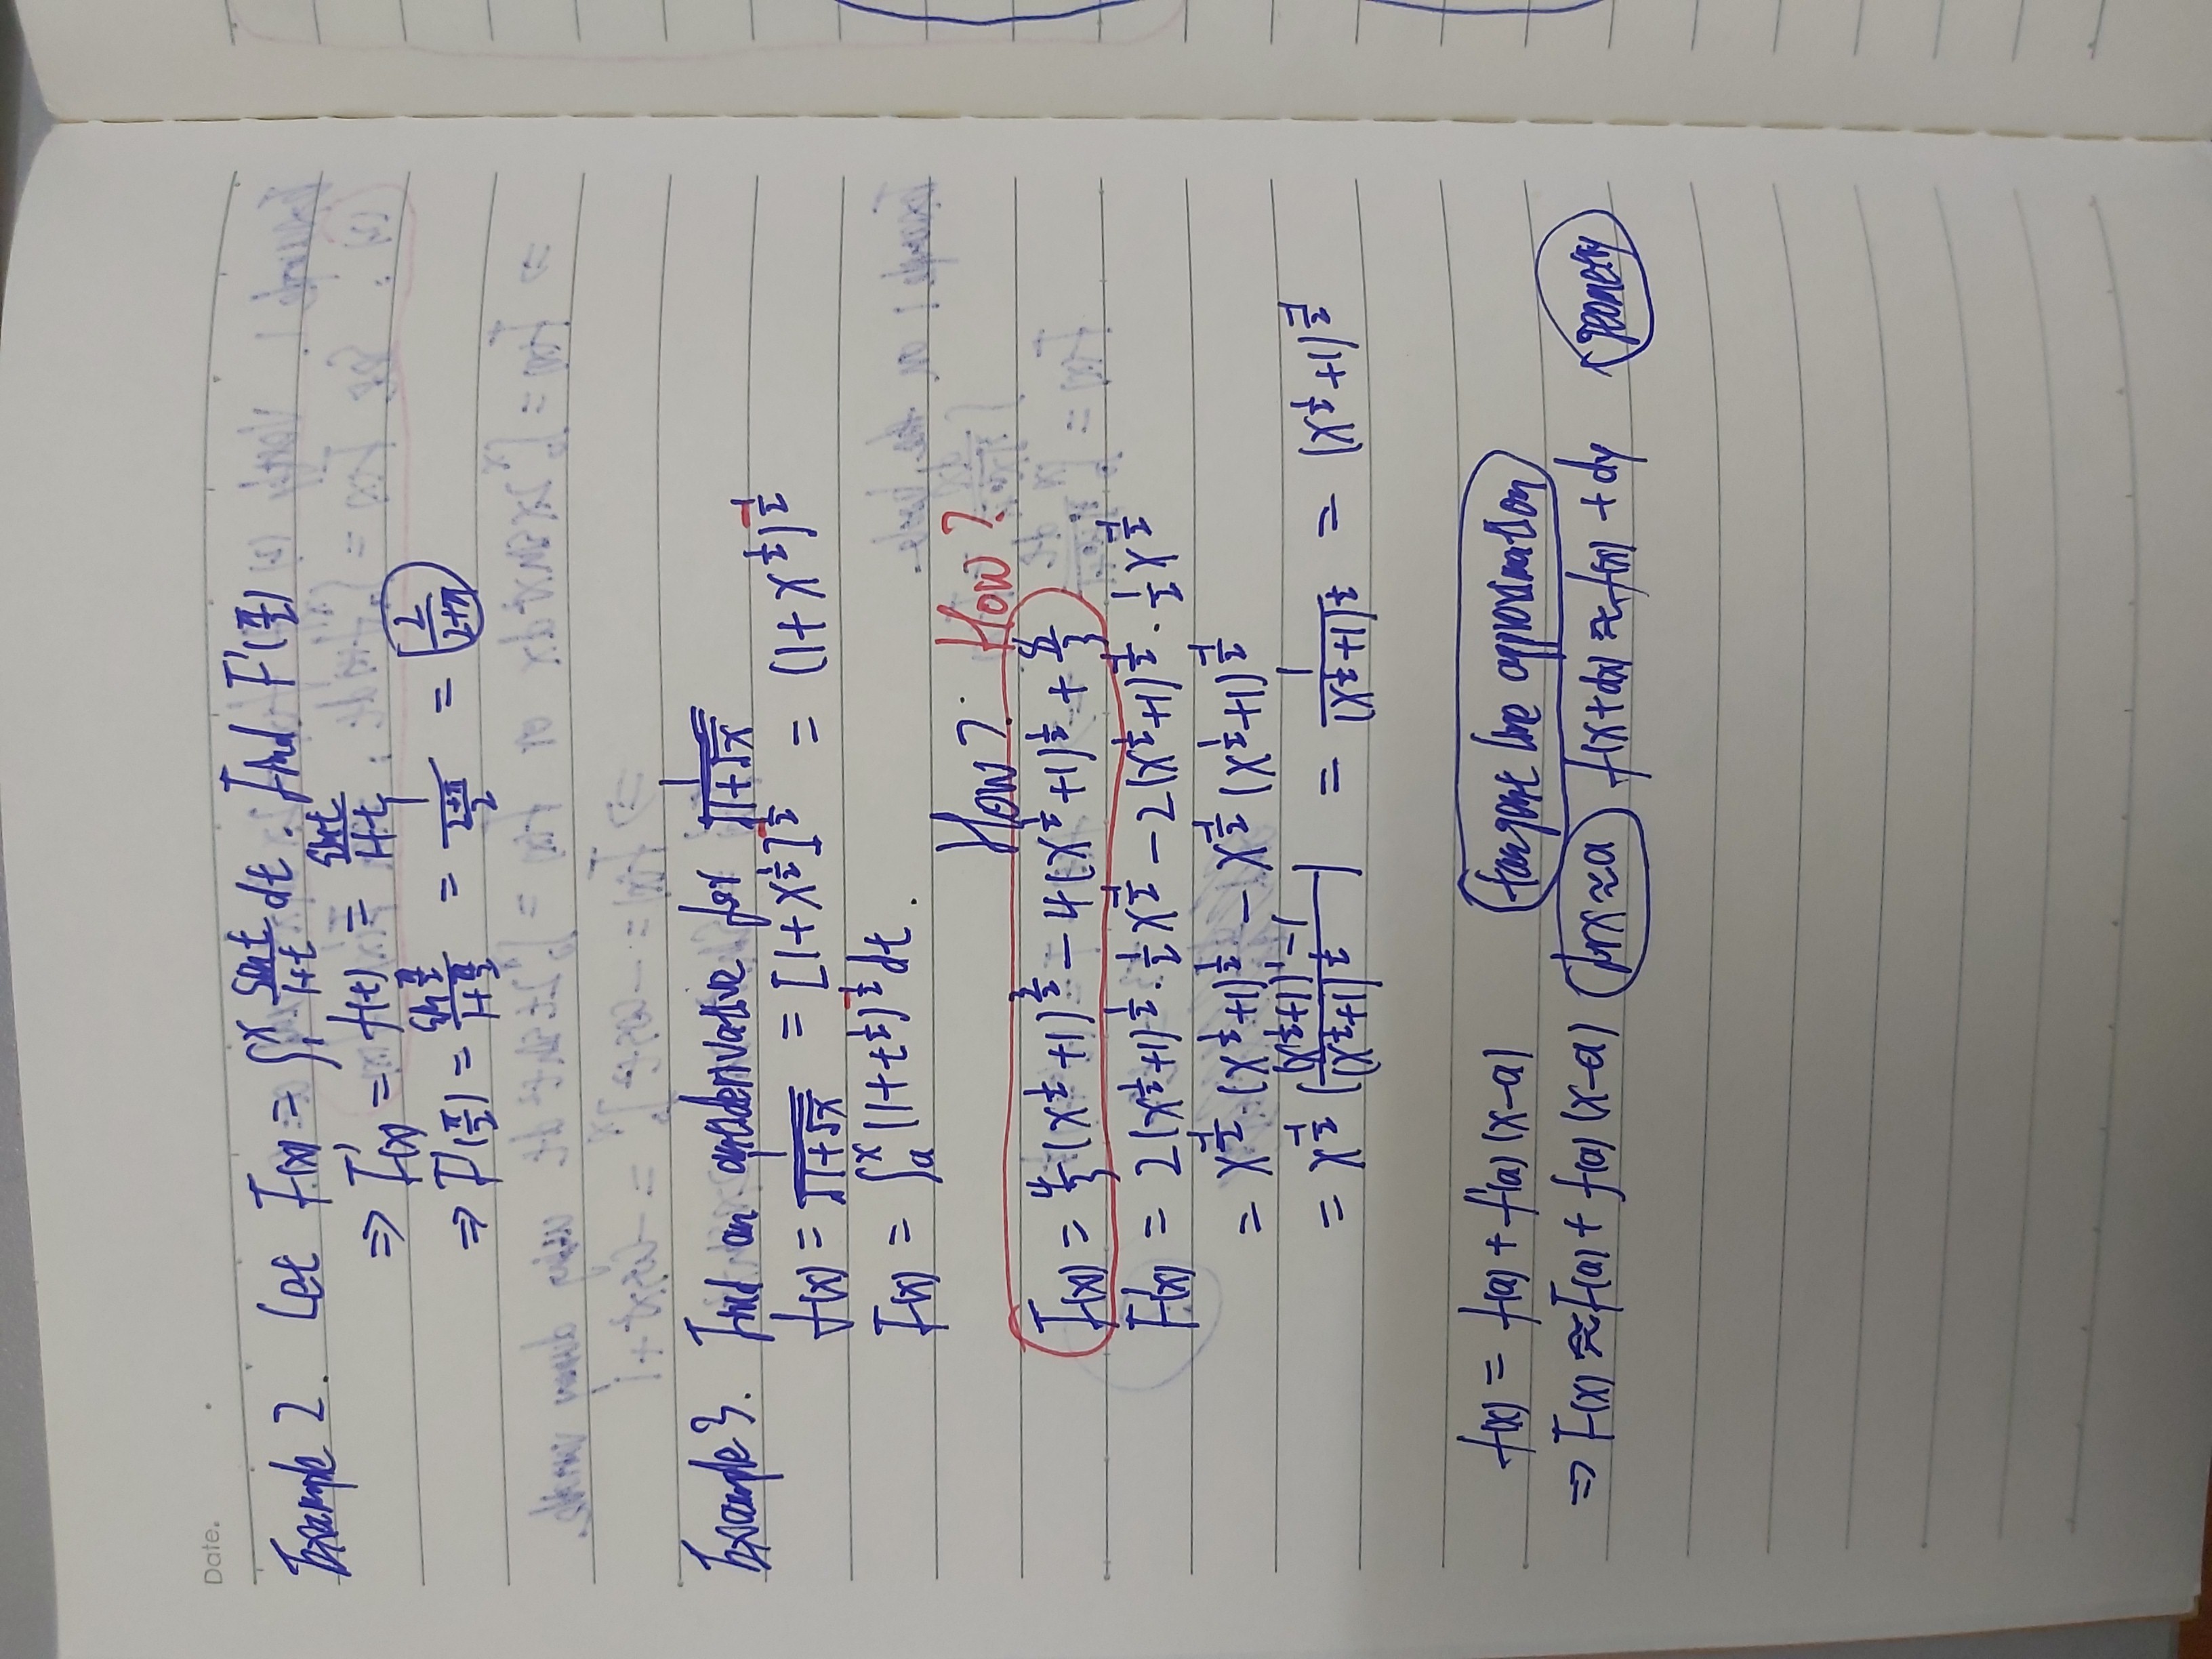 Date.
Example 2. Let F(x) = ∫₁ˣ sin t/(1+t) dt. Find F'(π/2)
⇒ F'(x) = f(t) = sin t/(1+t)
⇒ F'(π/2) = sin(π/2)/(1+π/2) = 1/((2+π)/2) = 2/(2+π)
Example 3. Find an antiderivative for 1/√(1+√x)
f(x) = 1/√(1+√x) = [1+x^(1/2)]^(-1/2) = (1+x^(1/2))^(-1/2)
F(x) = ∫ₐˣ (1+t^(1/2))^(-1/2) dt.
How? How?
F(x) = 4/3 (x^(1/2)+1)^(3/2) − 4(x^(1/2)+1)^(1/2) + 8/3
F'(x) = 2(x^(1/2)+1)^(1/2) · 1/2 x^(-1/2) − 2(x^(1/2)+1)^(-1/2) · 1/2 x^(-1/2)
= x^(-1/2) · (x^(1/2)+1)^(1/2) − x^(-1/2) (x^(1/2)+1)^(-1/2)
= x^(-1/2) [((x^(1/2)+1)^1 − 1)/(x^(1/2)+1)^(1/2)] = 1/(x^(1/2)+1)^(1/2) = (x^(1/2)+1)^(-1/2)
f(x) = f(a) + f'(a) (x−a) tangent line approximation
⇒ F(x) ≈ F(a) + f(a) (x−a) for x≈a f(x+dx) ≈ f(x) + dy geometry